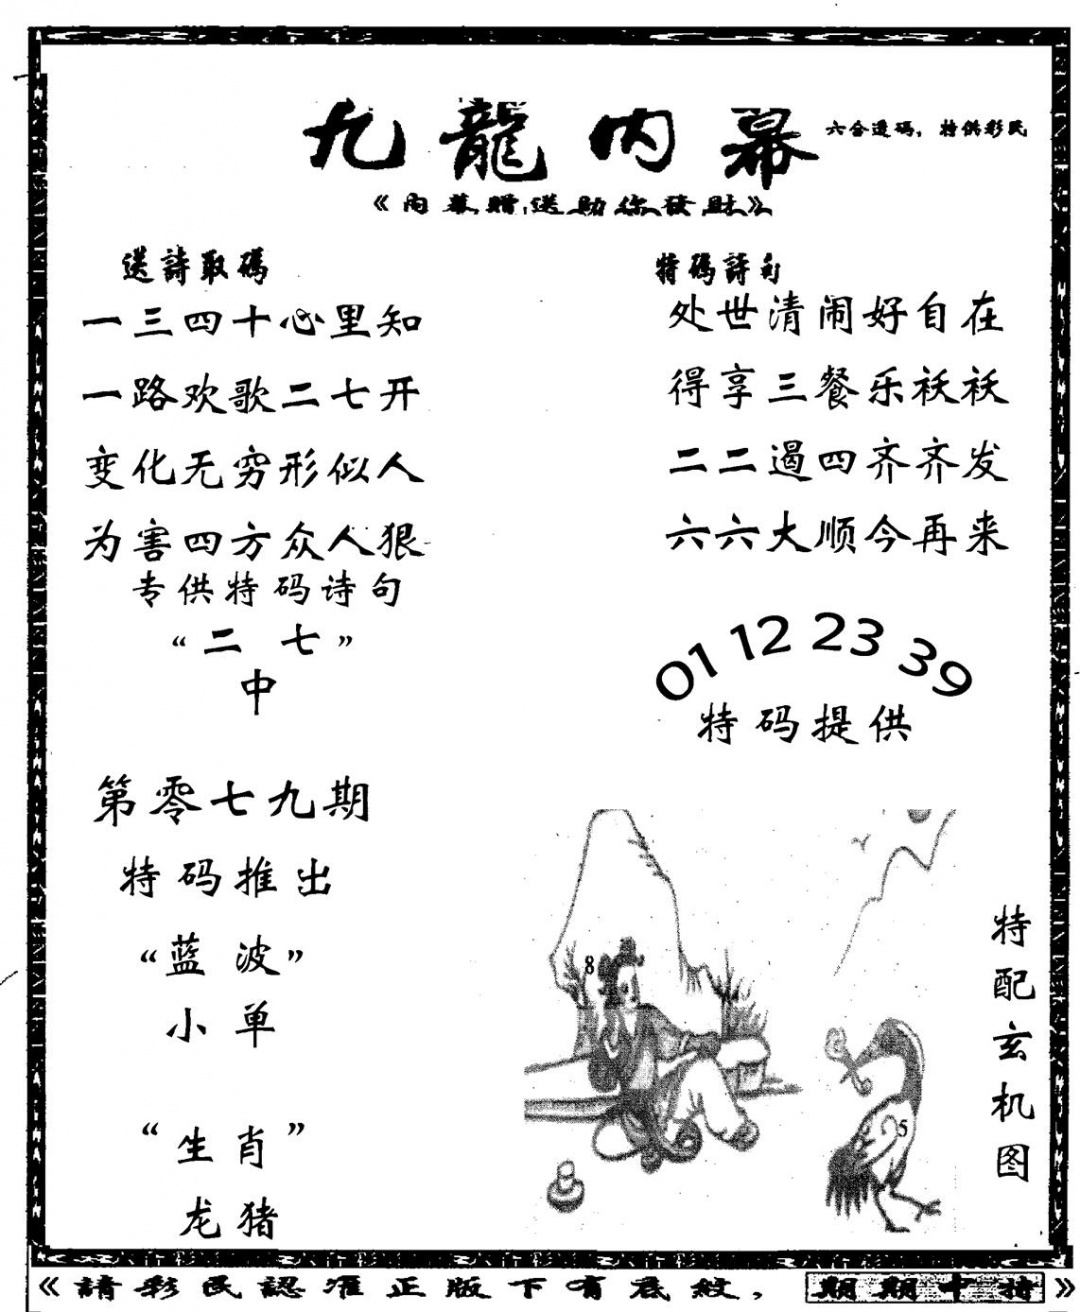 九龍内幕
六合透码，特供彩民
《内幕贈送助你發財》
送詩取碼
一三四十心里知
一路欢歌二七开
变化无穷形似人
为害四方众人狠
专供特码诗句
“二七”
中
第零七九期
特码推出
“蓝波”
小单
“生肖”
龙猪
特碼詩句
处世清闹好自在
得享三餐乐袄袄
二二遏四齐齐发
六六大顺今再来
01 12 23 39
特码提供
8
5
特配玄机图
《請彩民認准正版下有底紋，期期中特》